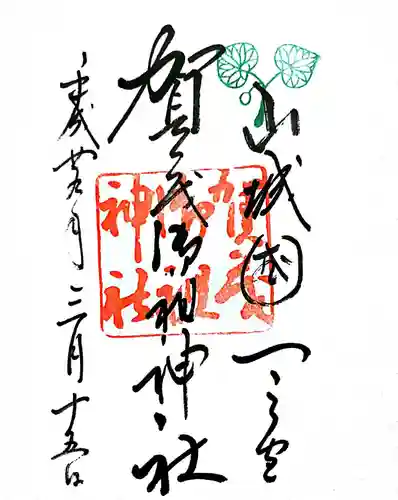 山城國一之宮
賀茂御祖神社
平成廿五年三月十五日
賀茂
御祖
神社